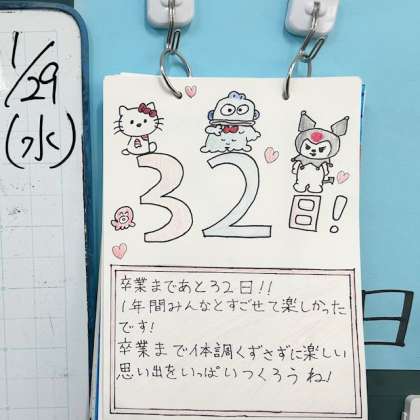 1/29
(水)
32
日!
卒業まであと32日!!
1年間みんなとすごせて楽しかった
です!
卒業まで体調くずさずに楽しい
思い出をいっぱいつくろうね!
日